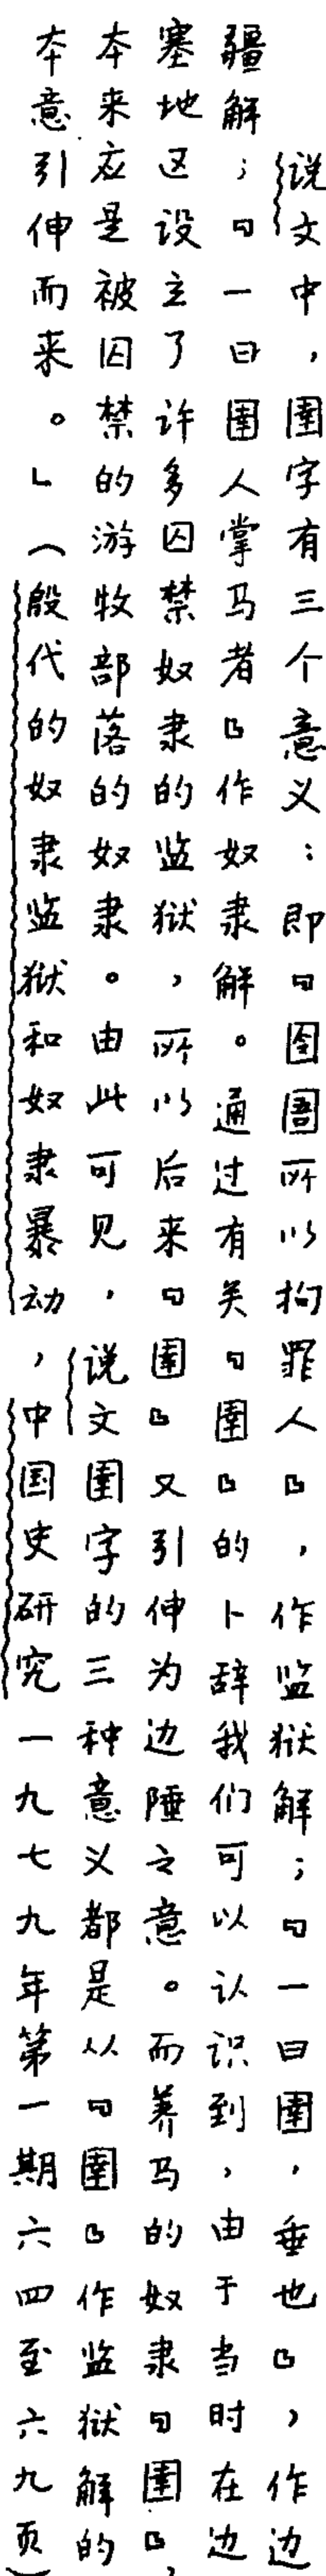 说文中，圉字有三个意义：即『囹圄所以拘罪人』，作监狱解；『一曰圉，垂也』，作边
疆解；『一曰圉人掌马者』作奴隶解。通过有关『圉』的卜辞我们可以认识到，由于当时在边
塞地区设立了许多囚禁奴隶的监狱，所以后来『圉』又引伸为边陲之意。而养马的奴隶『圉』，
本来应是被囚禁的游牧部落的奴隶。由此可见，说文圉字的三种意义都是从『圉』作监狱解的
本意引伸而来。」（殷代的奴隶监狱和奴隶暴动，中国史研究一九七九年第一期六四至六九页）